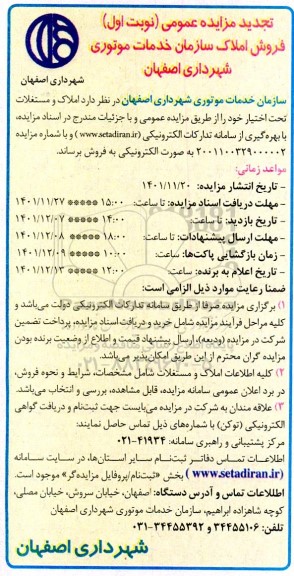 تجدید مزایده عمومی (نوبت اول)
فروش املاک سازمان خدمات موتوری
شهرداری اصفهان
شهرداری اصفهان
سازمان خدمات موتوری شهرداری اصفهان در نظر دارد املاک و مستغلات
تحت اختیار خود را از طریق مزایده عمومی و با جزئیات مندرج در اسناد مزایده،
با بهره‌گیری از سامانه تدارکات الکترونیکی (www.setadiran.ir) و با شماره مزایده
۲۰۰۱۱۰۰۳۲۹۰۰۰۰۰۲ به صورت الکترونیکی به فروش برساند.
مواعد زمانی:
- تاریخ انتشار مزایده: ۱۴۰۱/۱۱/۲۰
- مهلت دریافت اسناد مزایده: تا ساعت: ۱۵:۰۰ ***** ۱۴۰۱/۱۱/۲۷
- تاریخ بازدید: تا ساعت: ۱۴:۰۰ ***** ۱۴۰۱/۱۲/۰۷
- مهلت ارسال پیشنهادات: تا ساعت: ۱۸:۰۰ ***** ۱۴۰۱/۱۲/۰۸
- زمان بازگشایی پاکت‌ها: ساعت: ۱۰:۰۰ ***** ۱۴۰۱/۱۲/۰۹
- تاریخ اعلام به برنده: ساعت: ۱۲:۰۰ ***** ۱۴۰۱/۱۲/۱۳
ضمنا رعایت موارد ذیل الزامی است:
۱) برگزاری مزایده صرفا از طریق سامانه تدارکات الکترونیکی دولت می‌باشد و
کلیه مراحل فرآیند مزایده شامل خرید و دریافت اسناد مزایده، پرداخت تضمین
شرکت در مزایده (ودیعه)، ارسال پیشنهاد قیمت و اطلاع از وضعیت برنده بودن
مزایده گران محترم از این طریق امکان‌پذیر می‌باشد.
۲) کلیه اطلاعات املاک و مستغلات شامل مشخصات، شرایط و نحوه فروش،
در برد اعلان عمومی سامانه مزایده، قابل مشاهده، بررسی و انتخاب می‌باشد.
۳) علاقه مندان به شرکت در مزایده می‌بایست جهت ثبت‌نام و دریافت گواهی
الکترونیکی (توکن) با شماره‌های ذیل تماس حاصل نمایند:
مرکز پشتیبانی و راهبری سامانه: ۴۱۹۳۴-۰۲۱
اطلاعات تماس دفاتر ثبت‌نام سایر استان‌ها، در سایت سامانه
(www.setadiran.ir) بخش «ثبت‌نام/پروفایل مزایده‌گر» موجود است.
اطلاعات تماس و آدرس دستگاه: اصفهان، خیابان سروش، خیابان مصلی،
کوچه شاهزاده ابراهیم، سازمان خدمات موتوری شهرداری اصفهان
تلفن: ۳۴۴۵۵۱۰۶ و ۳۴۴۵۵۳۹۲-۰۳۱
شهرداری اصفهان